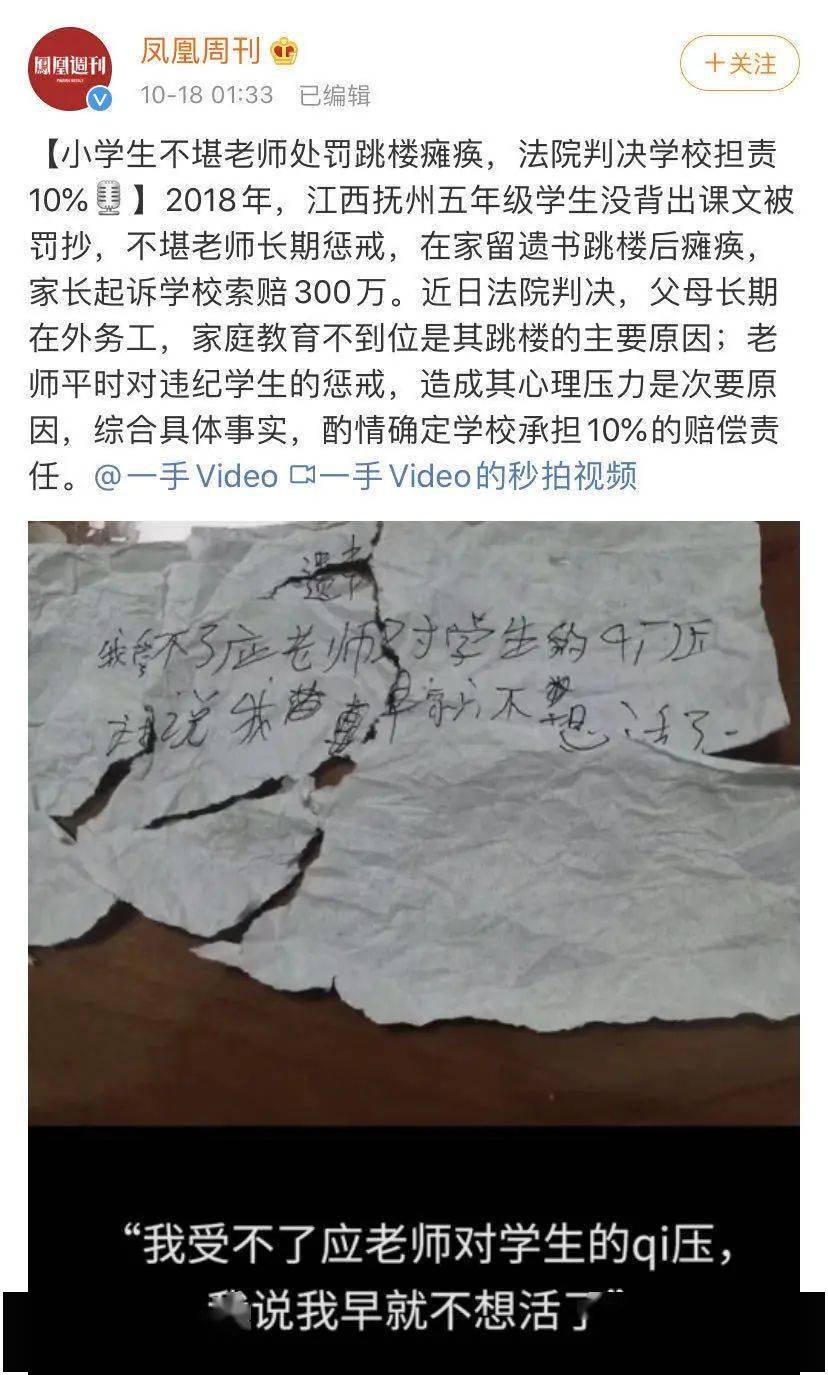 鳳凰週刊
凤凰周刊
+关注
10-18 01:33 已编辑
【小学生不堪老师处罚跳楼瘫痪，法院判决学校担责
10%🎙️】2018年，江西抚州五年级学生没背出课文被
罚抄，不堪老师长期惩戒，在家留遗书跳楼后瘫痪，
家长起诉学校索赔300万。近日法院判决，父母长期
在外务工，家庭教育不到位是其跳楼的主要原因；老
师平时对违纪学生的惩戒，造成其心理压力是次要原
因，综合具体事实，酌情确定学校承担10%的赔偿责
任。@一手Video 一手Video的秒拍视频
遗书
我受不了应老师对学生的qi压
说我 早就不想活了
“我受不了应老师对学生的qi压，
我说我早就不想活了”